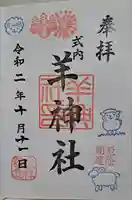 奉拝
式内
羊神社
令和二年十月十一日